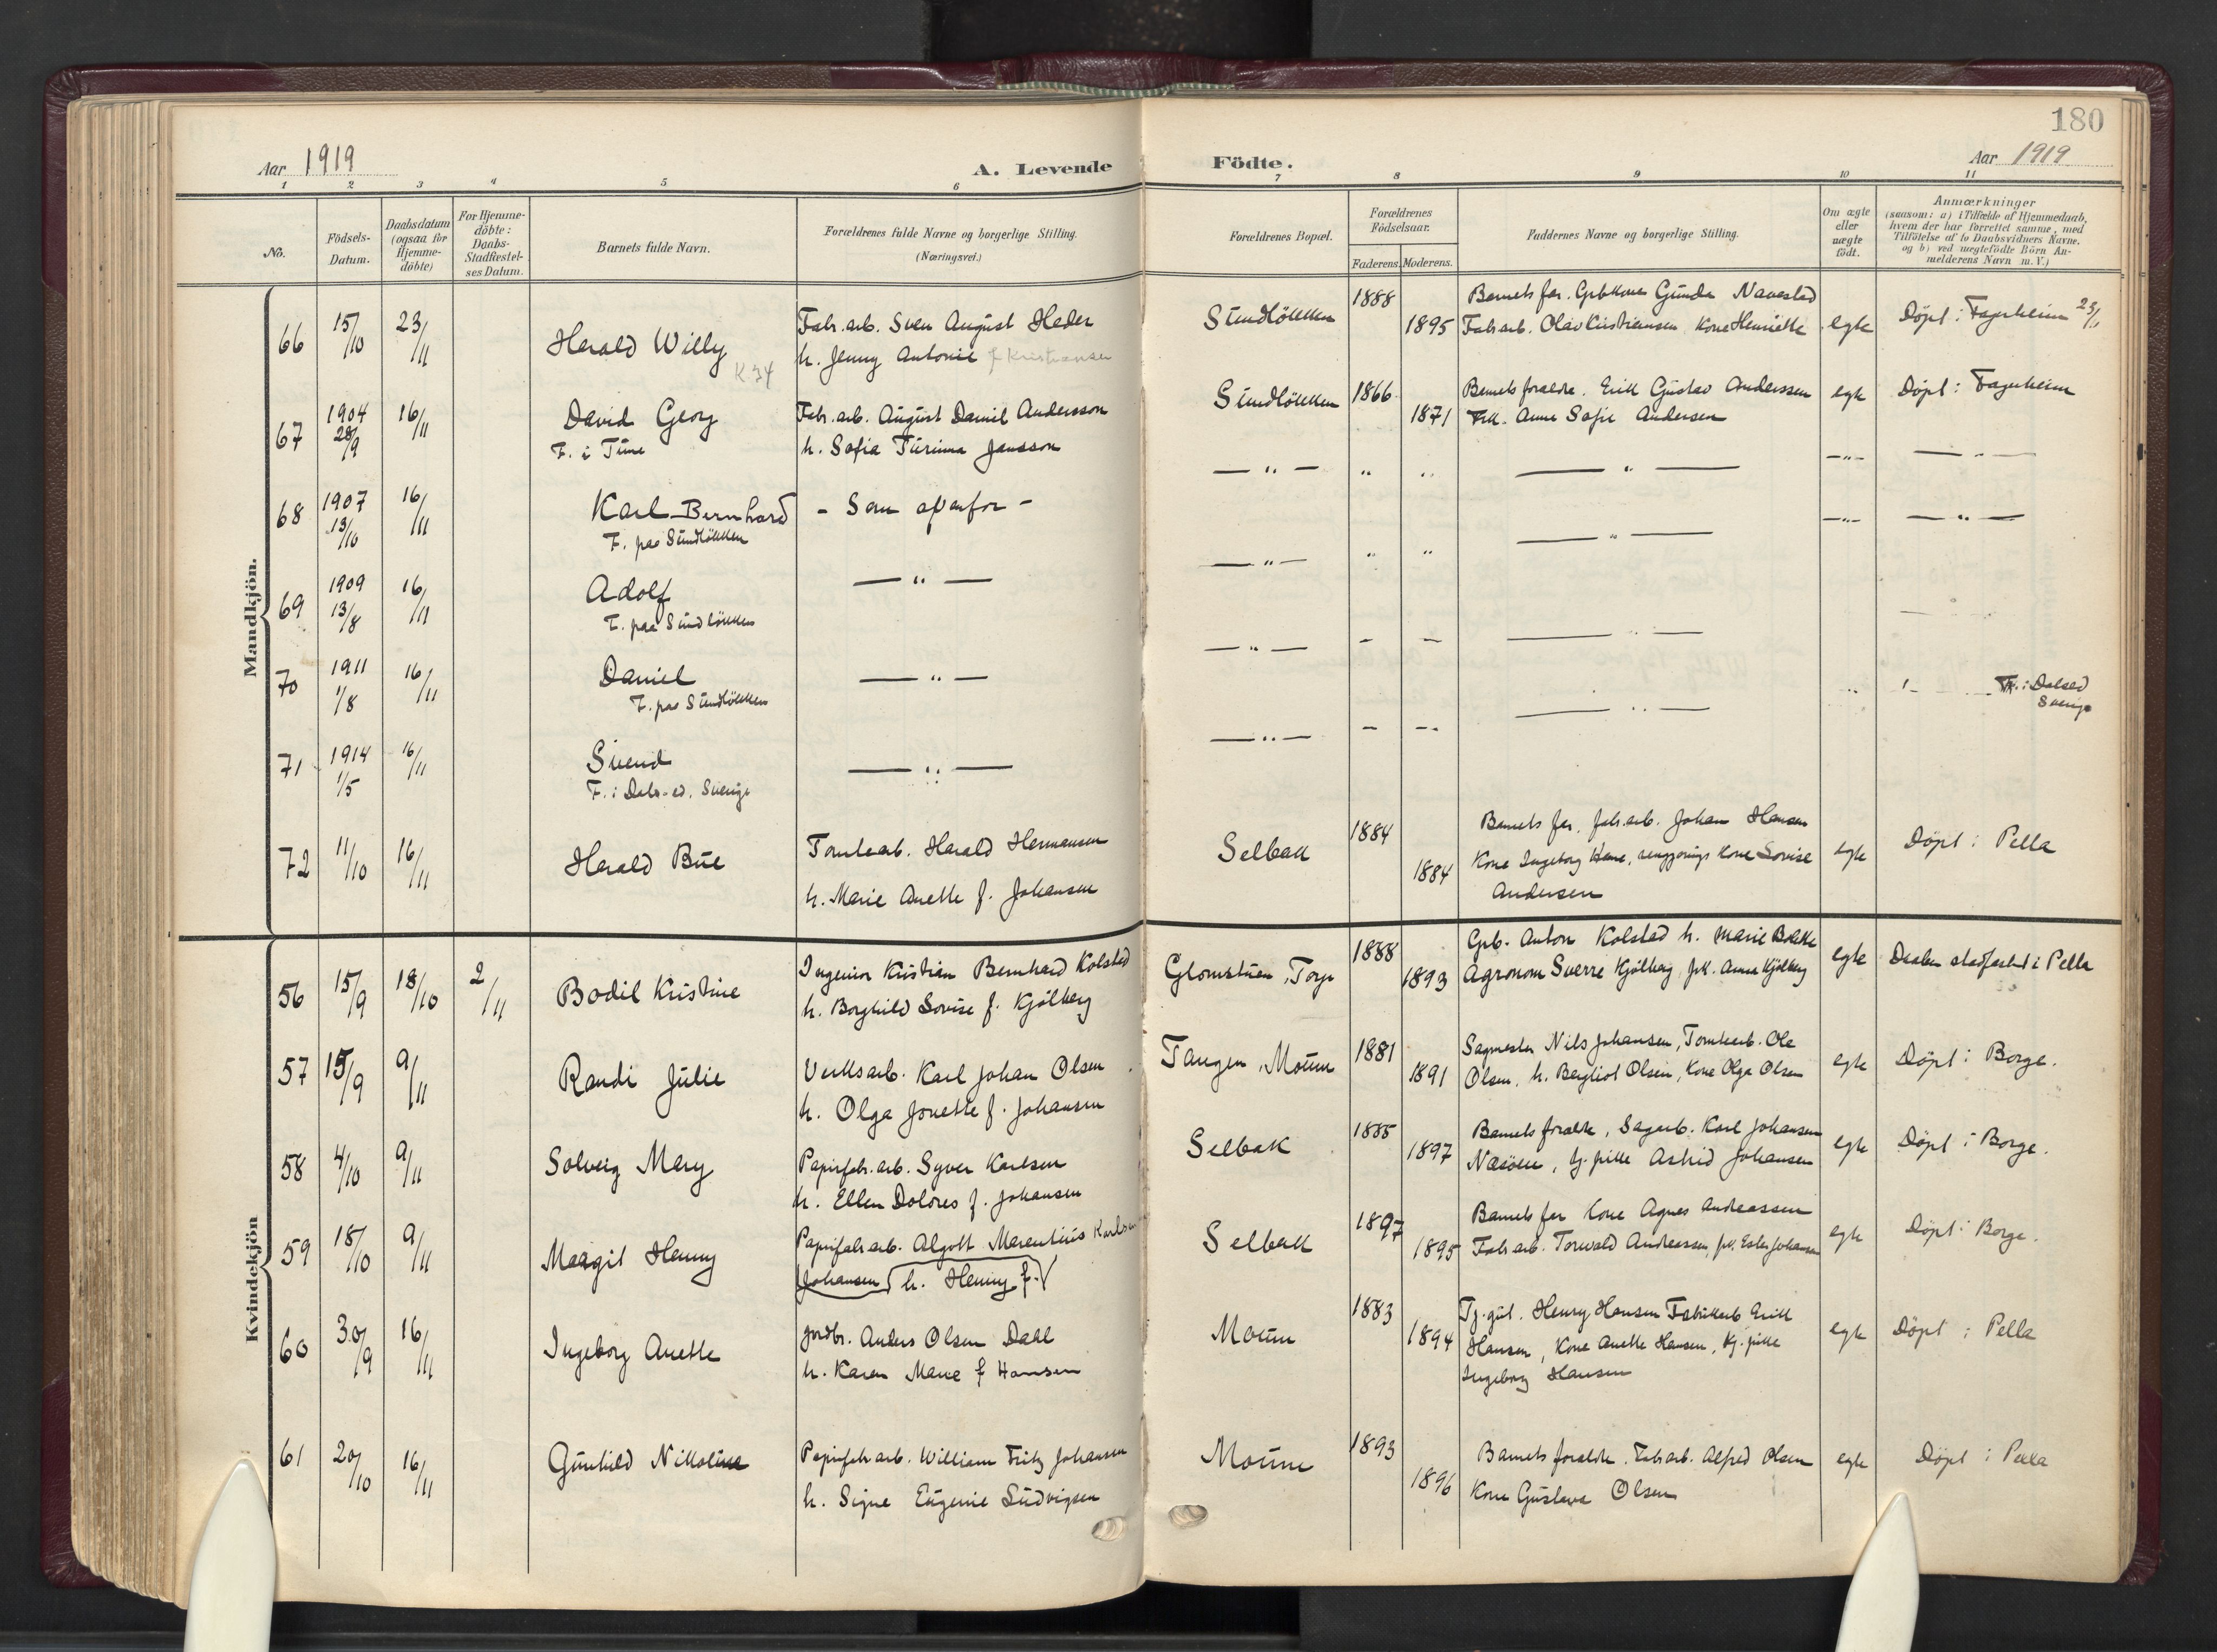 180
Aar 1919
A. Levende Födte.
Aar 1919
1 2 3 4 5 6 7 8 9 10 11
No.
Födsels-Datum.
Daabsdatum (ogsaa for Hjemme-döbte)
For Hjemme-döbte: Daabs-Stadfæstel-ses Datum.
Barnets fulde Navn.
Forældrenes fulde Navne og borgerlige Stilling.
(Næringsvei.)
Forældrenes Bopæl.
Forældrenes Födselsaar.
Faderens. Moderens.
Faddernes Navne og borgerlige Stilling.
Om ægte eller uægte födt.
Anmærkninger
(saasom: a) i Tilfælde af Hjemmedaab,
hvem der har forrettet samme, med
Tilföielse af to Daabsvidners Navne,
og b) ved uegtefödte Börn An-
melderens Navn m. V.)
Mandkjön.
66 15/10 23/11 Harald Willy K 34
Fabr.arb. Sven August Heder
h. Jenny Antonie f Kristiansen
Sundlökken 1888 1895
Barnets far. Navestad
Fabr.arb. Olav Kristiansen, Kone Henriette
egte Döpt i Fagerheim 23/11
67 1904 28/9 16/11 David Georg
F. i Tune
Fabr.arb. August Daniel Andersson
h. Sofia Jansson
Sundlökken 1866 1871
Barnets foraeldre. Erik Gustav Anderssen
Frk. Anna Sofie Andersen
egte Döpt i Fagerheim
68 1907 13/10 16/11 Karl Bernhard
F. paa Sundlökken
- Som ovenfor -
— " — " " — " — — " — — " —
69 1909 13/8 16/11 Adolf
F. paa Sundlökken
— " —
— " — " " — " — — " — — " —
70 1911 1/8 16/11 Daniel
F. paa Sundlökken
— " —
— " — - - — " —
F. i Dalsed
Sverige
71 1914 1/5 16/11 Svend
F. i Dals-ed. Sverige
— " —
— " — - - — " —
72 11/10 16/11 Harald Bue
Tomtearb. Harald Hermansen
h. Marie Anette f. Johansen
Selbak 1884 1884
Barnets far, fabr.arb. Johan Hansen
Kone Ingeborg Hansen, kone Lovise
Andersen
egte Döpt i Pella
Kvindekjön
56 15/9 18/10 2/11 Bodil Kristine
Ingeniör Kristian Bernhard Kolstad
h. Borghild Lovise f. Kjölberg
Glomstuen, Torp 1888 1893
Grb. Anton Kolstad h. Marie
Agronom Sverre Kjölberg, frk. Anna Kjölberg
egte Daaben stadfæstet i Pella
57 15/9 9/11 Randi Julie
Verksarb. Karl Johan Olsen
h. Olga Jonette f. Johansen
Tangen, Moum 1881 1891
Sagmester Nils Johansen, Tomtearb. Ole
Olsen, h. Bergliot Olsen, Kone Olga Olsen
egte Döpt i Borge.
58 4/10 9/11 Solveig Mary
Papirfabr.arb. Syver Karlsen
h. Ellen Dolores f. Johansen
Selbak 1885 1897
Barnets foraeldre, Sagarb. Karl Johansen
tj. pike Astrid Johansen
egte Döpt i Borge.
59 18/10 9/11 Margit Henny
Papirfabr.arb. Algott Marentius Karlsen
Johansen h. Henny f.
Selbak 1897 1895
Barnets far Kone Agnes Andreassen
Fabr.arb. Torvald Andreassen, frk. Ester Johansen
egte Döpt i Borge.
60 30/9 16/11 Ingeborg Anette
Jordbr. Anders Olsen Dahl
h. Karen Marie f Hansen
Moum 1883 1894
Tj.gut. Henry Hansen Fabrikarb Erik
Hansen, Kone Anette Hansen, tj. pike
Ingeborg Hansen
egte Döpt i Pella
61 20/10 16/11 Gunhild Nikoline
Papirfabr.arb. William Fritz Johansen
h. Signe Eugenie Ludvigsen
Moum 1893 1896
Barnets foraeldre. Fabr.arb. Alfred Olsen
Kone Gustava Olsen
egte Döpt i Pella